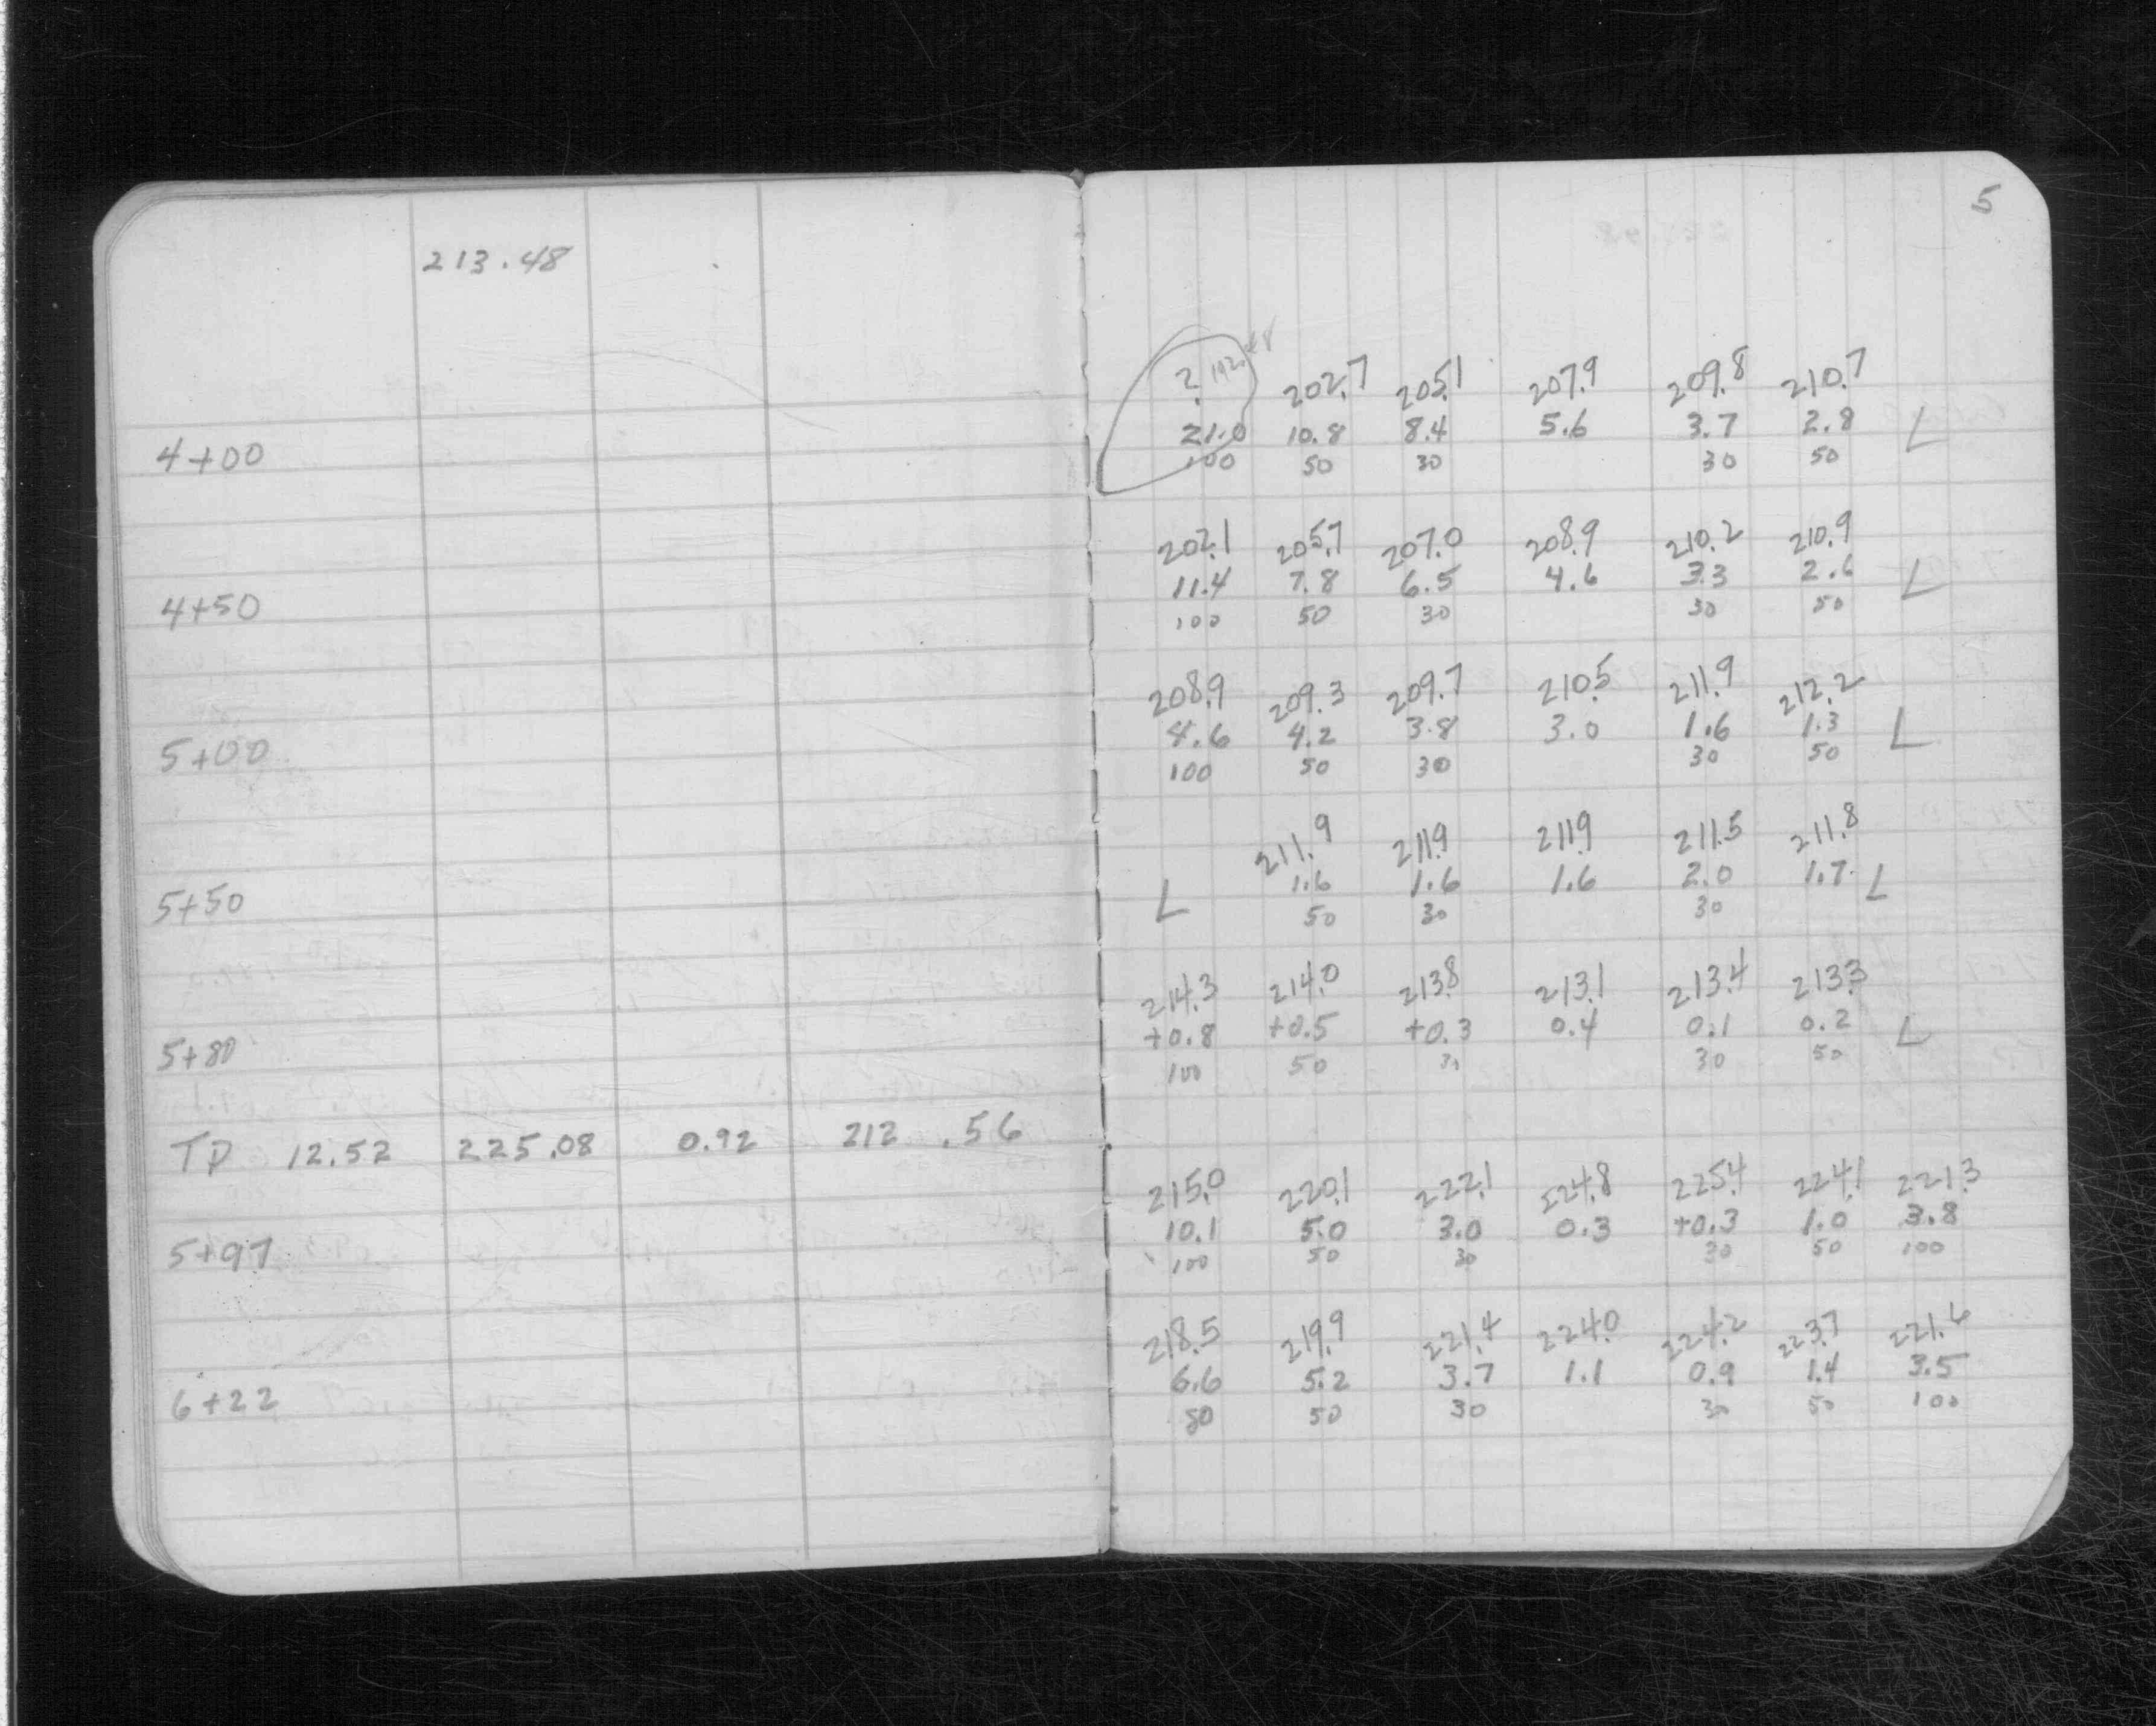 5
213.48
? 192.48 202.7 205.1 207.9 209.8 210.7
4+00 21.0 10.8 8.4 5.6 3.7 2.8 L
100 50 30 30 50
202.1 205.7 207.0 208.9 210.2 210.9
4+50 11.4 7.8 6.5 4.6 3.3 2.6 L
100 50 30 30 50
208.9 209.3 209.7 210.5 211.9 212.2
5+00 4.6 4.2 3.8 3.0 1.6 1.3 L
100 50 30 30 50
211.9 211.9 211.9 211.5 211.8
5+50 L 1.6 1.6 1.6 2.0 1.7 L
50 30 30
214.3 214.0 213.8 213.1 213.4 213.3
5+80 +0.8 +0.5 +0.3 0.4 0.1 0.2 L
100 50 30 30 50
TP 12.52 225.08 0.92 212.56
215.0 220.1 222.1 224.8 225.4 224.1 221.3
5+97 10.1 5.0 3.0 0.3 +0.3 1.0 3.8
100 50 30 30 50 100
218.5 219.9 221.4 224.0 224.2 223.7 221.6
6+22 6.6 5.2 3.7 1.1 0.9 1.4 3.5
80 50 30 30 50 100